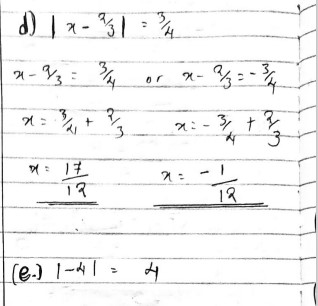 d) | x - 2/3 | = 3/4
x - 2/3 = 3/4 or x - 2/3 = - 3/4
x = 3/4 + 2/3 x = - 3/4 + 2/3
x = 17/12 x = - 1/12
(e.) |-4| = 4